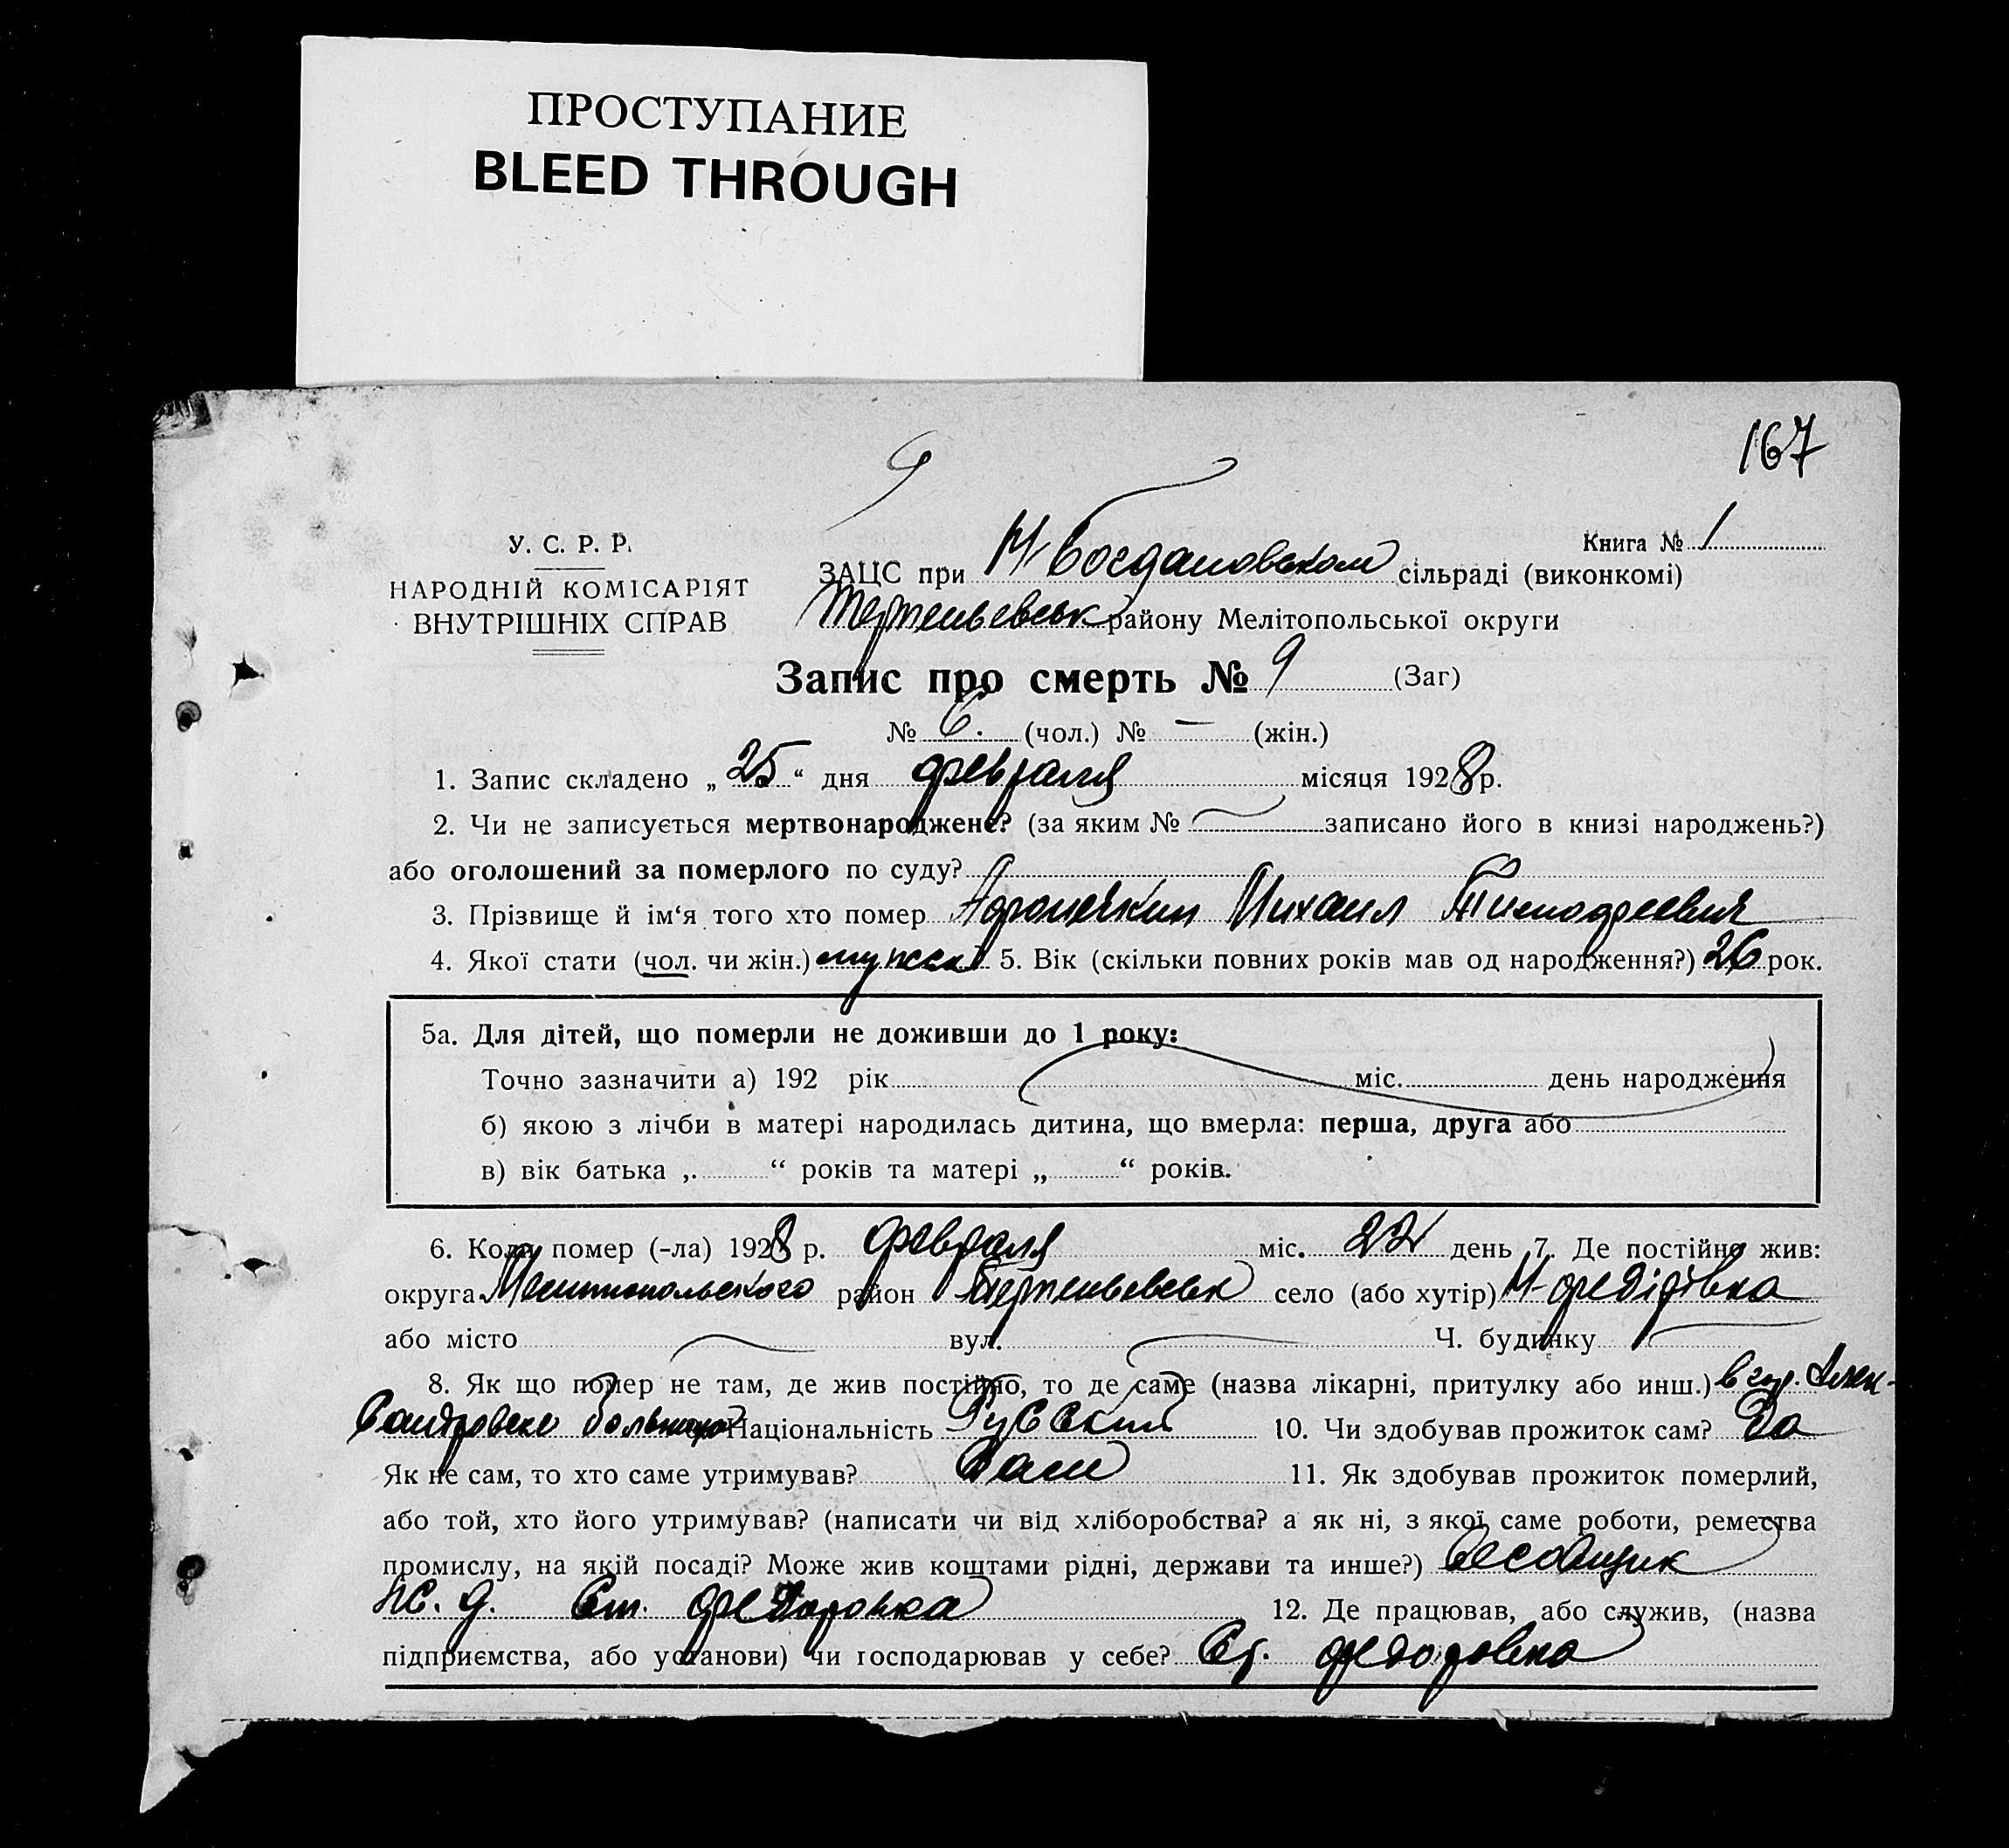 ПРОСТУПАНИЕ
BLEED THROUGH
167
9
У. С. Р. Р.
НАРОДНІЙ КОМІСАРІЯТ
ВНУТРІШНІХ СПРАВ
Книга № 1
ЗАЦС при Н-Богдановском сільраді (виконкомі)
Терпеньевськ району Мелітопольської округи
Запис про смерть № 9 (Заг)
№ 6. (чол.) № — (жін.)
1. Запис складено „ 25 “ дня февраля місяця 1928 р.
2. Чи не записується мертвонароджене? (за яким № записано його в книзі народжень?)
або оголошений за померлого по суду?
3. Прізвище й ім‘я того хто помер Михаил Тимофеевич
4. Якої стати (чол. чи жін.) мужск 5. Вік (скільки повних років мав од народження?) 26 рок.
5а. Для дітей, що померли не доживши до 1 року:
Точно зазначити а) 192 рік міс. день народження
б) якою з лічби в матері народилась дитина, що вмерла: перша, друга або
в) вік батька „ “ років та матері „ “ років.
6. Коли помер (-ла) 1928 р. февраля міс. 22 день 7. Де постійно жив:
округа Мелитопольского район Терпеньевськ село (або хутір) Н-Федорівка
або місто вул. Ч. будинку
8. Як що помер не там, де жив постійно, то де саме (назва лікарні, притулку або инш.) в гор. Алек-
сандровске больница Національність Русский 10. Чи здобував прожиток сам? Да
Як не сам, то хто саме утримував? Сам 11. Як здобував прожиток померлий,
або той, хто його утримував? (написати чи від хліборобства? а як ні, з якої саме роботи, ремества
промислу, на якій посаді? Може жив коштами рідні, держави та инше?) Весовщик
ж. д. Ст. Федоровка 12. Де працював, або служив, (назва
підприємства, або установи) чи господарював у себе? Ст. Федоровка